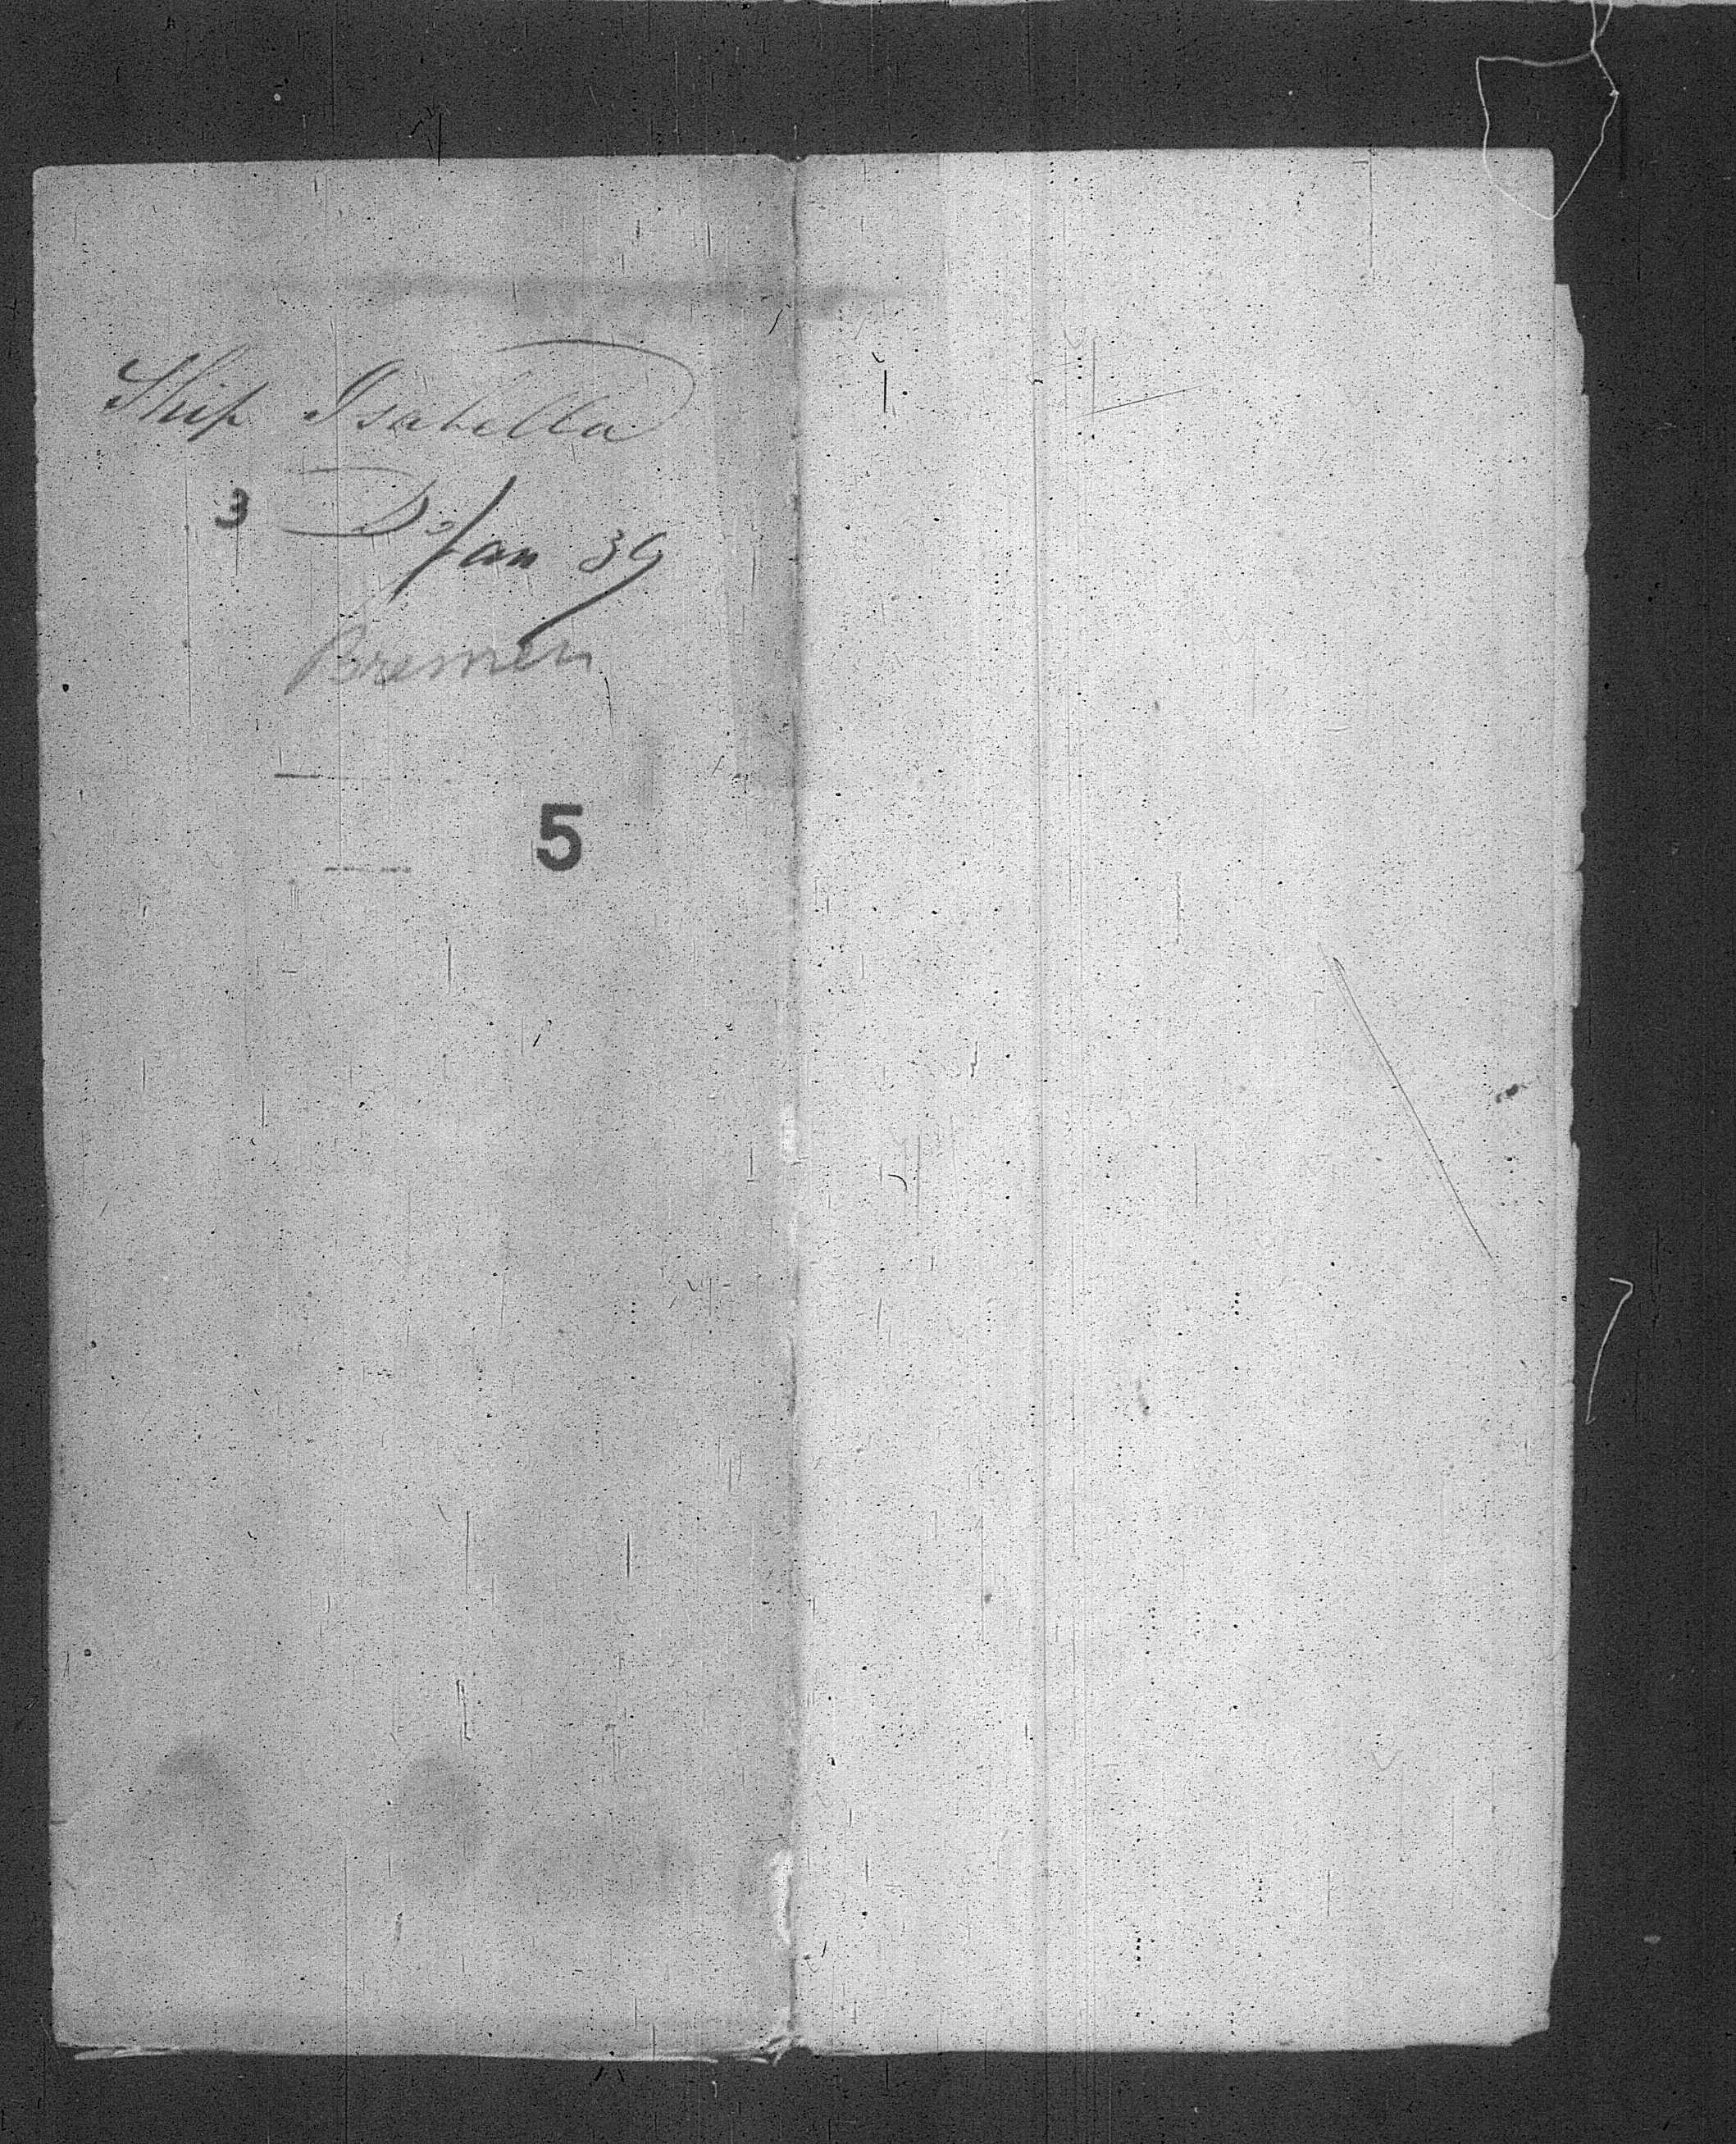 Ship Isabella
3 Do Jan 39
Bremen
5